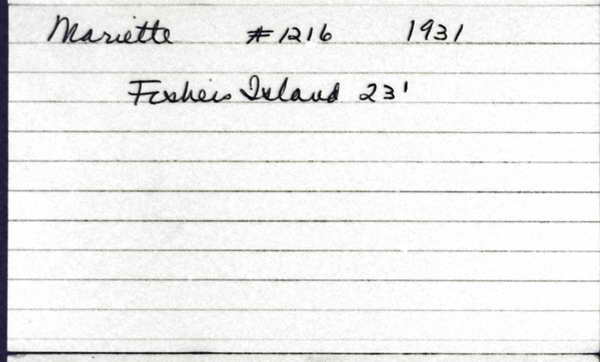 Mariette #1216 1931
Fishers Island 23'